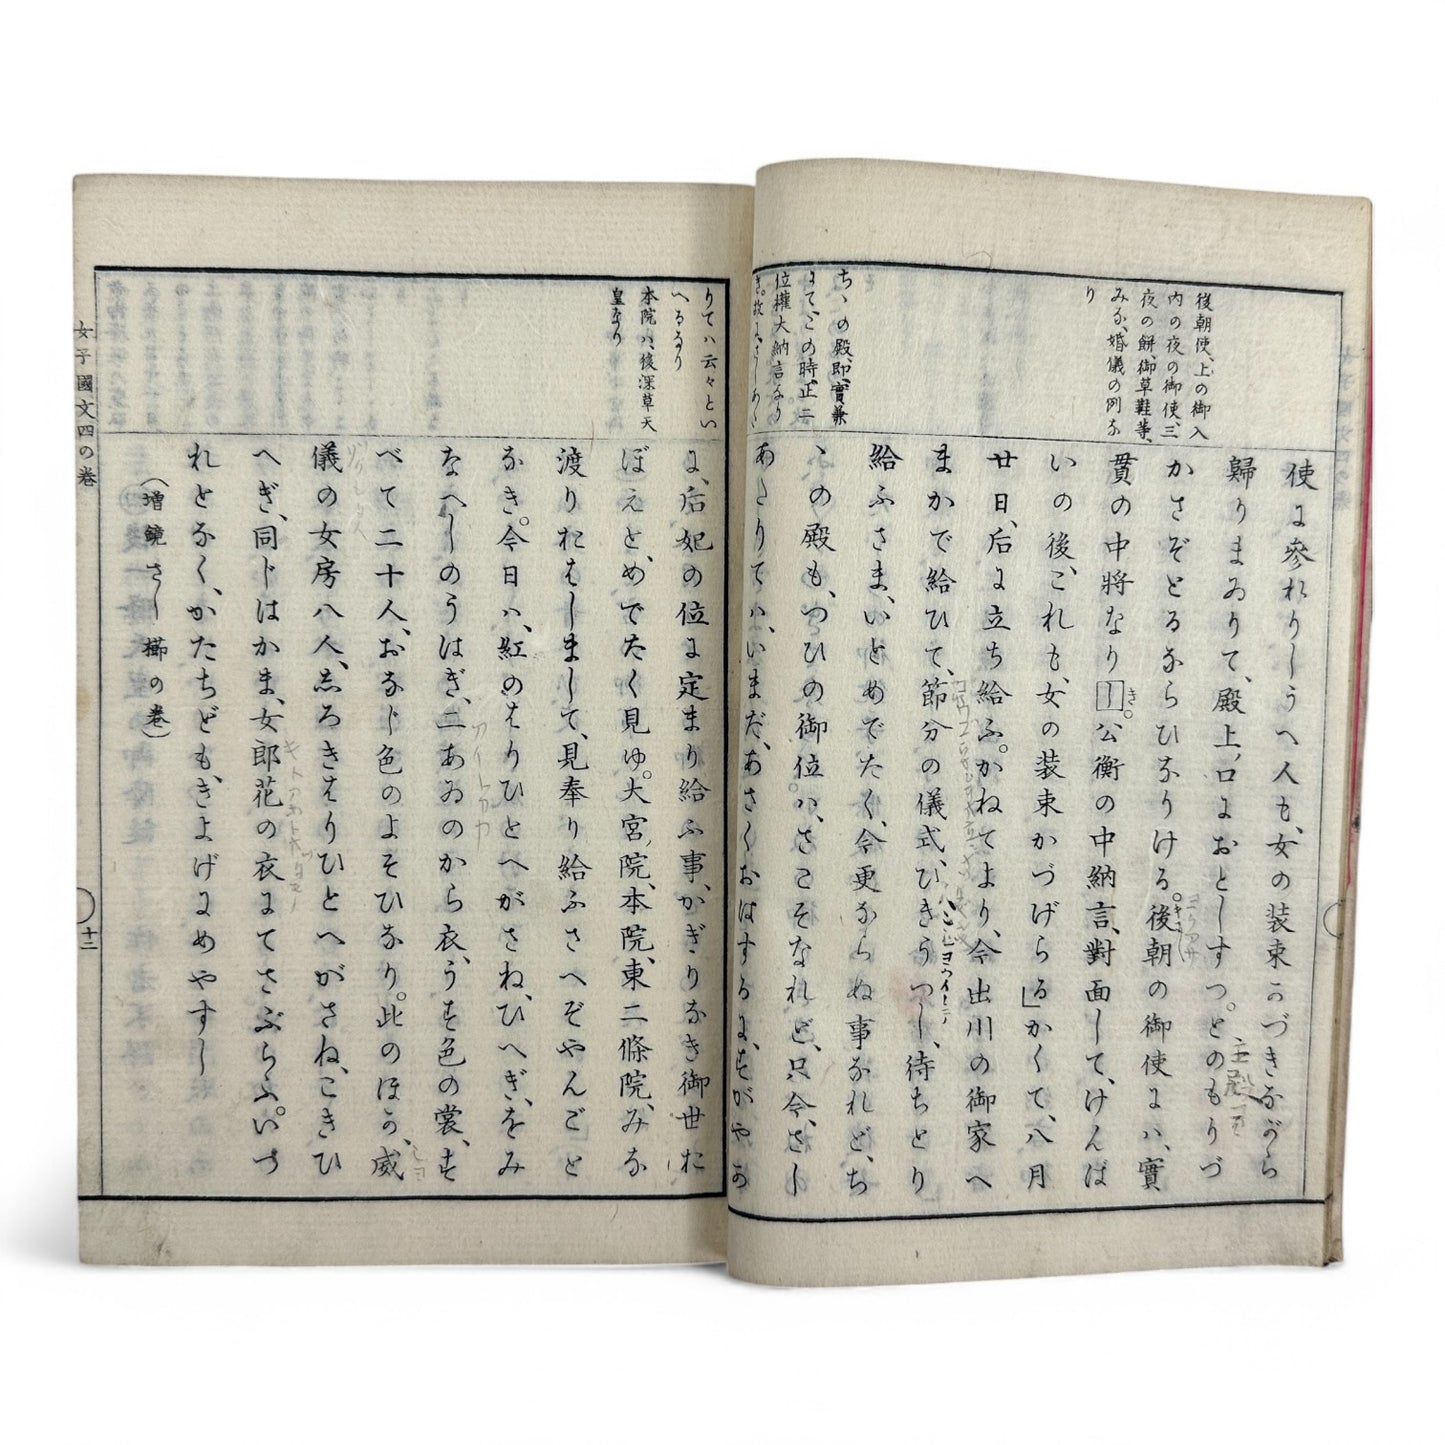 後朝使、上の御入
内の夜の御使、三
夜の餅、御草鞋等、
みな、婚儀の例な
り
ちゝの殿、即、實兼
にて、この時、正二
位權大納言なり
使に參れりしうへ人も、女の装束かづきながら
歸りまゐりて、殿上、口におとしすつ。とのもりづ
かさぞとるならひなりける。後朝の御使には、實
貫の中將なり
き。公衡の中納言、對面して、けんば
いの後、これも、女の装束かづけらる」かくて、八月
廿日、后に立ち給ふ。かねてより、今出川の御家へ
まかで給ひて、節分の儀式、ひきうつし、待ちとり
給ふさま、いとめでたく、今更ならぬ事なれど、ち
ゝの殿も、つひの御位は、さこそなれど、只今、さし
あたりては、いまだ、あさくおはするに、すがやか
りては云々とい
へるなり
本院は、後深草天
皇なり
に、后妃の位に定まり給ふ事、かぎりなき御世お
ぼえと、めでたく見ゆ。大宮院、本院、東二條院、みな
渡りおはしまして、見奉り給ふさへぞやんごと
なき。今日は、紅のはりひとへがさね、ひへぎ、をみ
なへしのうはぎ、二あゐのから衣、うす色の裳、す
べて二十人、おなじ色のよそひなり。此のほか、威
儀の女房八人、しろきはりひとへがさね、こきひ
へぎ、同じはかま、女郎花の衣にてさぶらふ。いづ
れとなく、かたちども、きよげにめやすし
（増鏡さし櫛の巻）
女子國文四の巻
十二